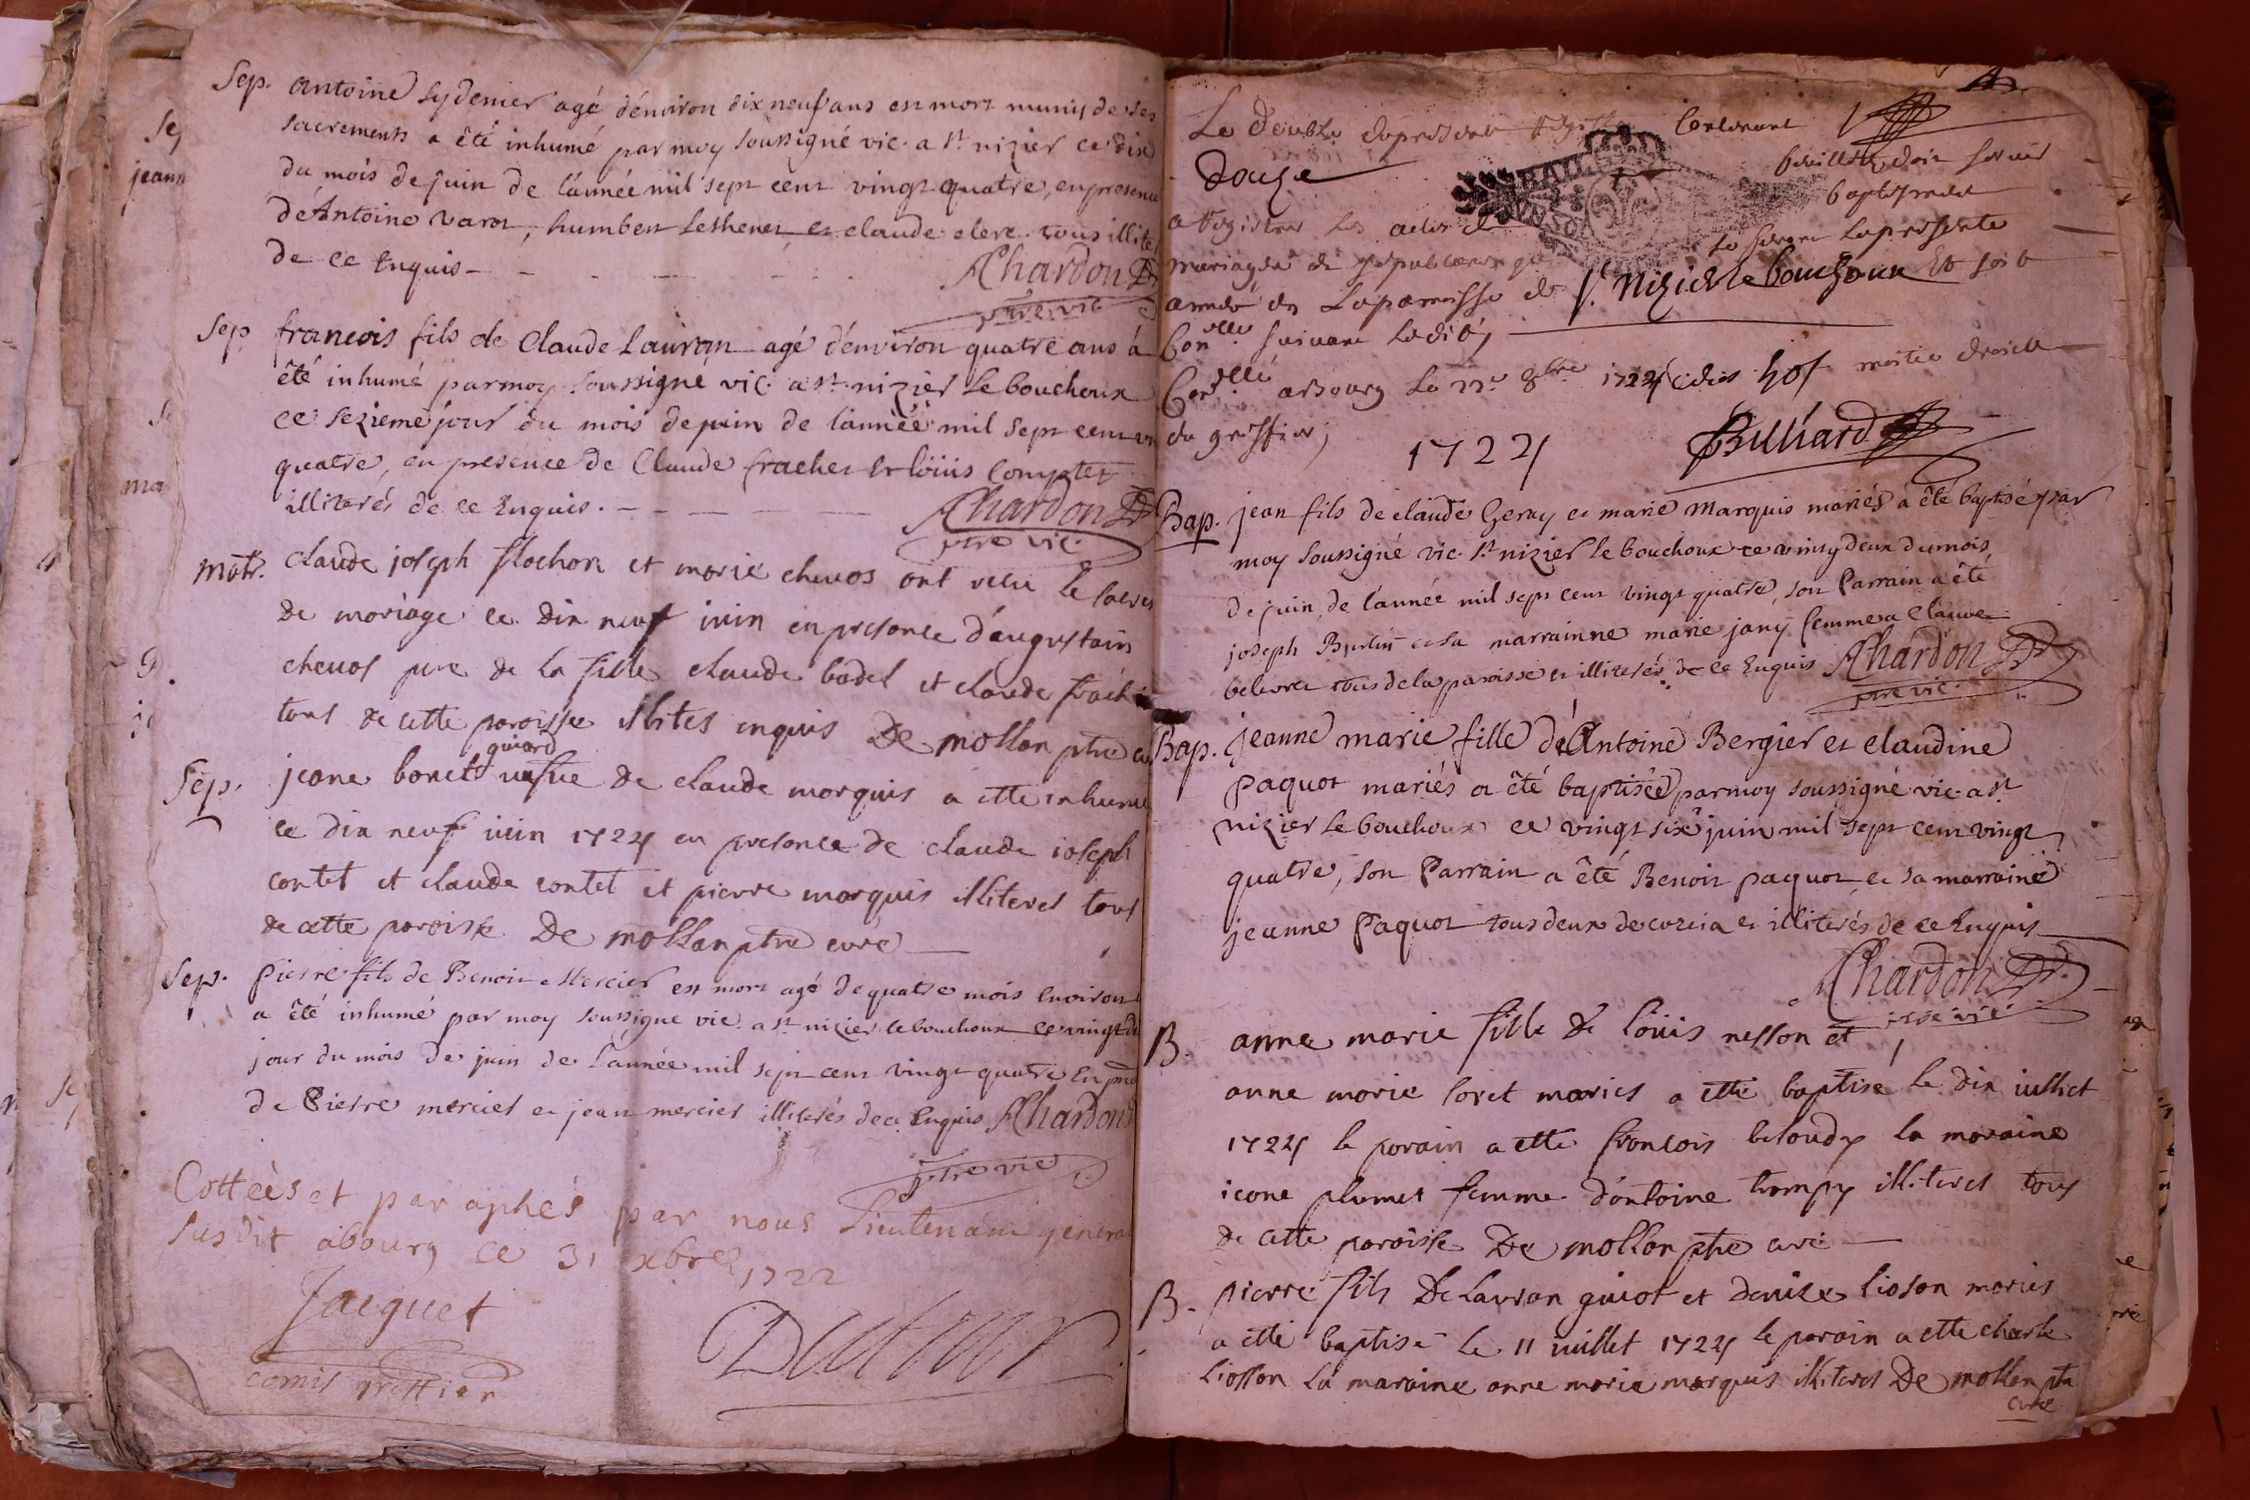 Sep. Antoine Sydenier agé d'environ dix neuf ans est mort munis de ses
sacrements a été inhumé par moy soussigné vic. a st. nizier ce dix
du mois de juin de l'année mil sept cent vingt quatre, en presence
d'Antoine varot, humbert et claude clerc tous illite
de ce Enquis
AChardon
ptre vic
Sep francois fils de Claude Lauran agé d'environ quatre ans à
été inhumé par moy soussigné vic. a st. nizier le bouchoux
ce sezieme jour du mois de juin de l'année mil sept cent
quatre, en presence de Claude frachet et loüis Comptet
illiterés de ce Enquis.
AChardon
ptre vic.
Mar. Claude joseph flochon et marie chevos ont recu le
de mariage ce dix neuf iuin en presance d'augustain
chevos pere de la fille claude badel et claude
tous de cette paroisse illites inquis De mollan ptre
guiard
Sep. jeane bonet vefve de claude marquis a etté inhume
ce dix neuf iuin 1724 en presance de claude ioseph
contet et claude contet et pierre marquis illiteres tous
de cette paroisse De mollan ptre curé
Sep. Pierre fils de Benoit Mercier est mort agé de quatre mois environ
a été inhumé par moy soussigné vic. a st nizier le bouchoux ce vingt
jour du mois de juin de l'année mil sept cent vingt quatre En
de Pierre mercier et jean mercier illiterés de ce Enquis AChardon
ptre vic
Cottées et paraphés par nous Lieutenant general
susdit abourg ce 31 xbre 1722
Jacquet
comis greffier
Le double du present Contenant
douze feuillets doit servir
a Registrer les actes de baptesmes
mariages de la presente
année en La paroisse de St. Nizier le bouchoux Et soit
Conllé suivant Ledit
Conllé abourg le 8bre 1724 moitie droict
du greffier,
1724
Billiard
Bap. jean fils de claude Geray et marie Marquis mariés à été baptisé par
moy soussigné vic. st nizier le bouchoux ce vingt deux du mois
de juin, de l'année mil sept cent vingt quatre, son Parrain a été
joseph Burtin et sa marrainne marie jany femme a Claude
tous de la paroisse et illiterés de ce Enquis AChardon
ptre vic.
Bap. jeanne marie fille d'Antoine Bergier et claudine
Paquot mariés a été baptisée par moy soussigné vic. a st
nizier le bouchoux ce vingt six juin mil sept cent vingt
quatre, son Parrain a été Benoit paquot et sa marraine
jeanne Paquot tous deux de curcia et illiterés de ce Enquis
AChardon
ptre vic.
B. anne marie fille de loüis nesson et
anne marie loret maries a etté baptisé le dix iulliet
1724 le parain a etté francois la maraine
ieane plumet femme d'antoine trompy illiteres tous
de cette paroisse De mollan ptre curé
B. pierre fils De Lauran guiot et denise lioson maries
a etté baptisé le 11 iuillet 1724 le parain a etté charle
liosson la maraine anne marie marquis illiteres De mollan ptre
curé